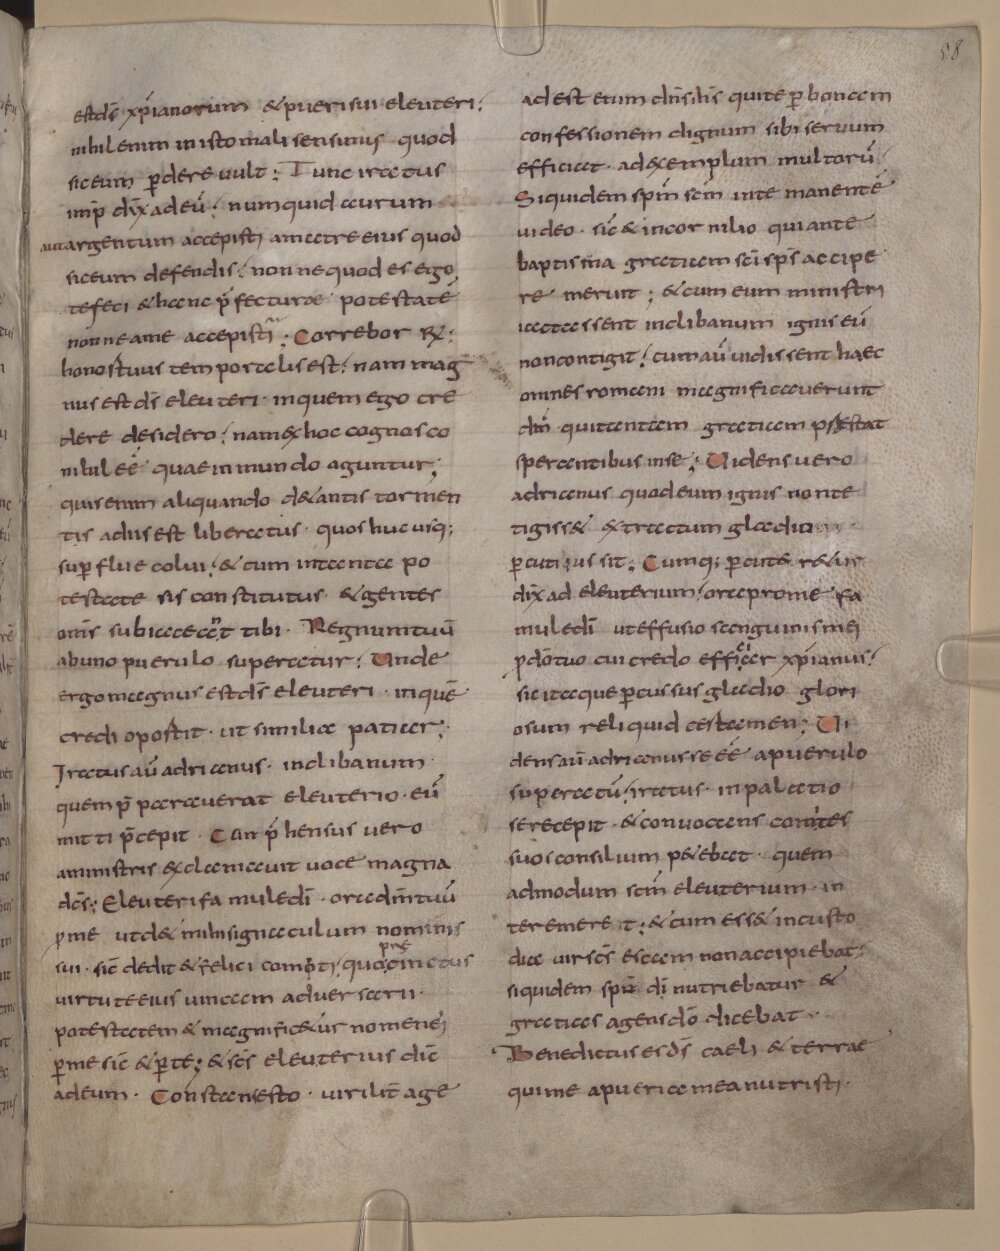 58
est ds̄ xp̄ianorum & pueri sui eleuteri;
nihil enim in isto mali sensimus quod
sic eum p̄dere uult; Tunc iratus
imp̄ dix̄ ad eū; numquid aurum
aut argentum accepisti a matre eius quod
sic eum defendis; nonne quod es ego
te feci & hanc p̄fecturae potestatē
nonne a me accepisti; Correbor Rx̄;
honos tuus temporalis est; nam mag
nus est ds̄ eleuteri in quem ego cre
dere desidero; nam ex hoc cognosco
nihil eē quae in mundo aguntur;
quis enim aliquando de tantis tormen
tis adiis est liberatus quos huc usq;
supflue colui; & cum in tanta po
testate sis constitutus & gentes
omīs subiacecer̄t tibi Regnum tuū
ab uno puerulo superatur; Unde
ergo magnus est ds̄ eleuteri in quē
credi oportit ut similia patiar;
Iratus aū adrianus in clibanum
quem p̄paraverat eleuterio eū
mitti p̄cepit Cum p̄hensus vero
a ministris exclamauit uoce magna
dcs; Eleuteri famule dī ora dn̄m tuū
p̄ me ut d& mihi signaculum nominis
sui sic̄ dedit & felici comiti quo p̄cinctus
uirtute eius uincam aduersarii
potestatem & magnific&ur nomen eī
p̄ me sic̄ & p̄ te; & scs̄ eleuterius dic̄
ad eum Constans esto uirilit̄ age
adest etiam dn̄s ihs qui te p̄ bonam
confessionem dignum sibi seruum
efficiat ad exemplum multorū
Siquidem spm̄ scm̄ in te manentē
uideo sic̄ & in cornilio qui ante
baptisma gratiam sci sps̄ accipe
re meruit; & cum eum ministri
iactassent in clibanum ignis eū
non contigit; cum aū uidissent haec
omnes romani magnificauerunt
dn̄m qui tantam gratiam pstat
sperantibus in se; Uidens uero
adrianus quod eum ignis non te
tigiss& extractum gladio
p̄cuti ius sit; Cumq; p̄cut& r&ur
dix̄ ad eleuterium; ora pro me fa
mule dī ut effusio sanguinis mei
p̄ dō tuo cui credo efficiar xp̄ianus;
sic itaque p̄cussus gladio glori
osum reliquid certamen; Ui
dens aū adrianus se eē a puerulo
superatū; iratus in palatio
se recepit & conuocans comites
suos consilium p&ebat quem
admodum scm̄ eleuterium in
teremeret; & cum ess& in custo
dia uir scs̄ escam non accipiebat;
siquidem spū dī nutriebatur &
gratias agens dō dicebat
Benedictus es ds̄ caeli & terrae
qui me a pueritia mea nutristi